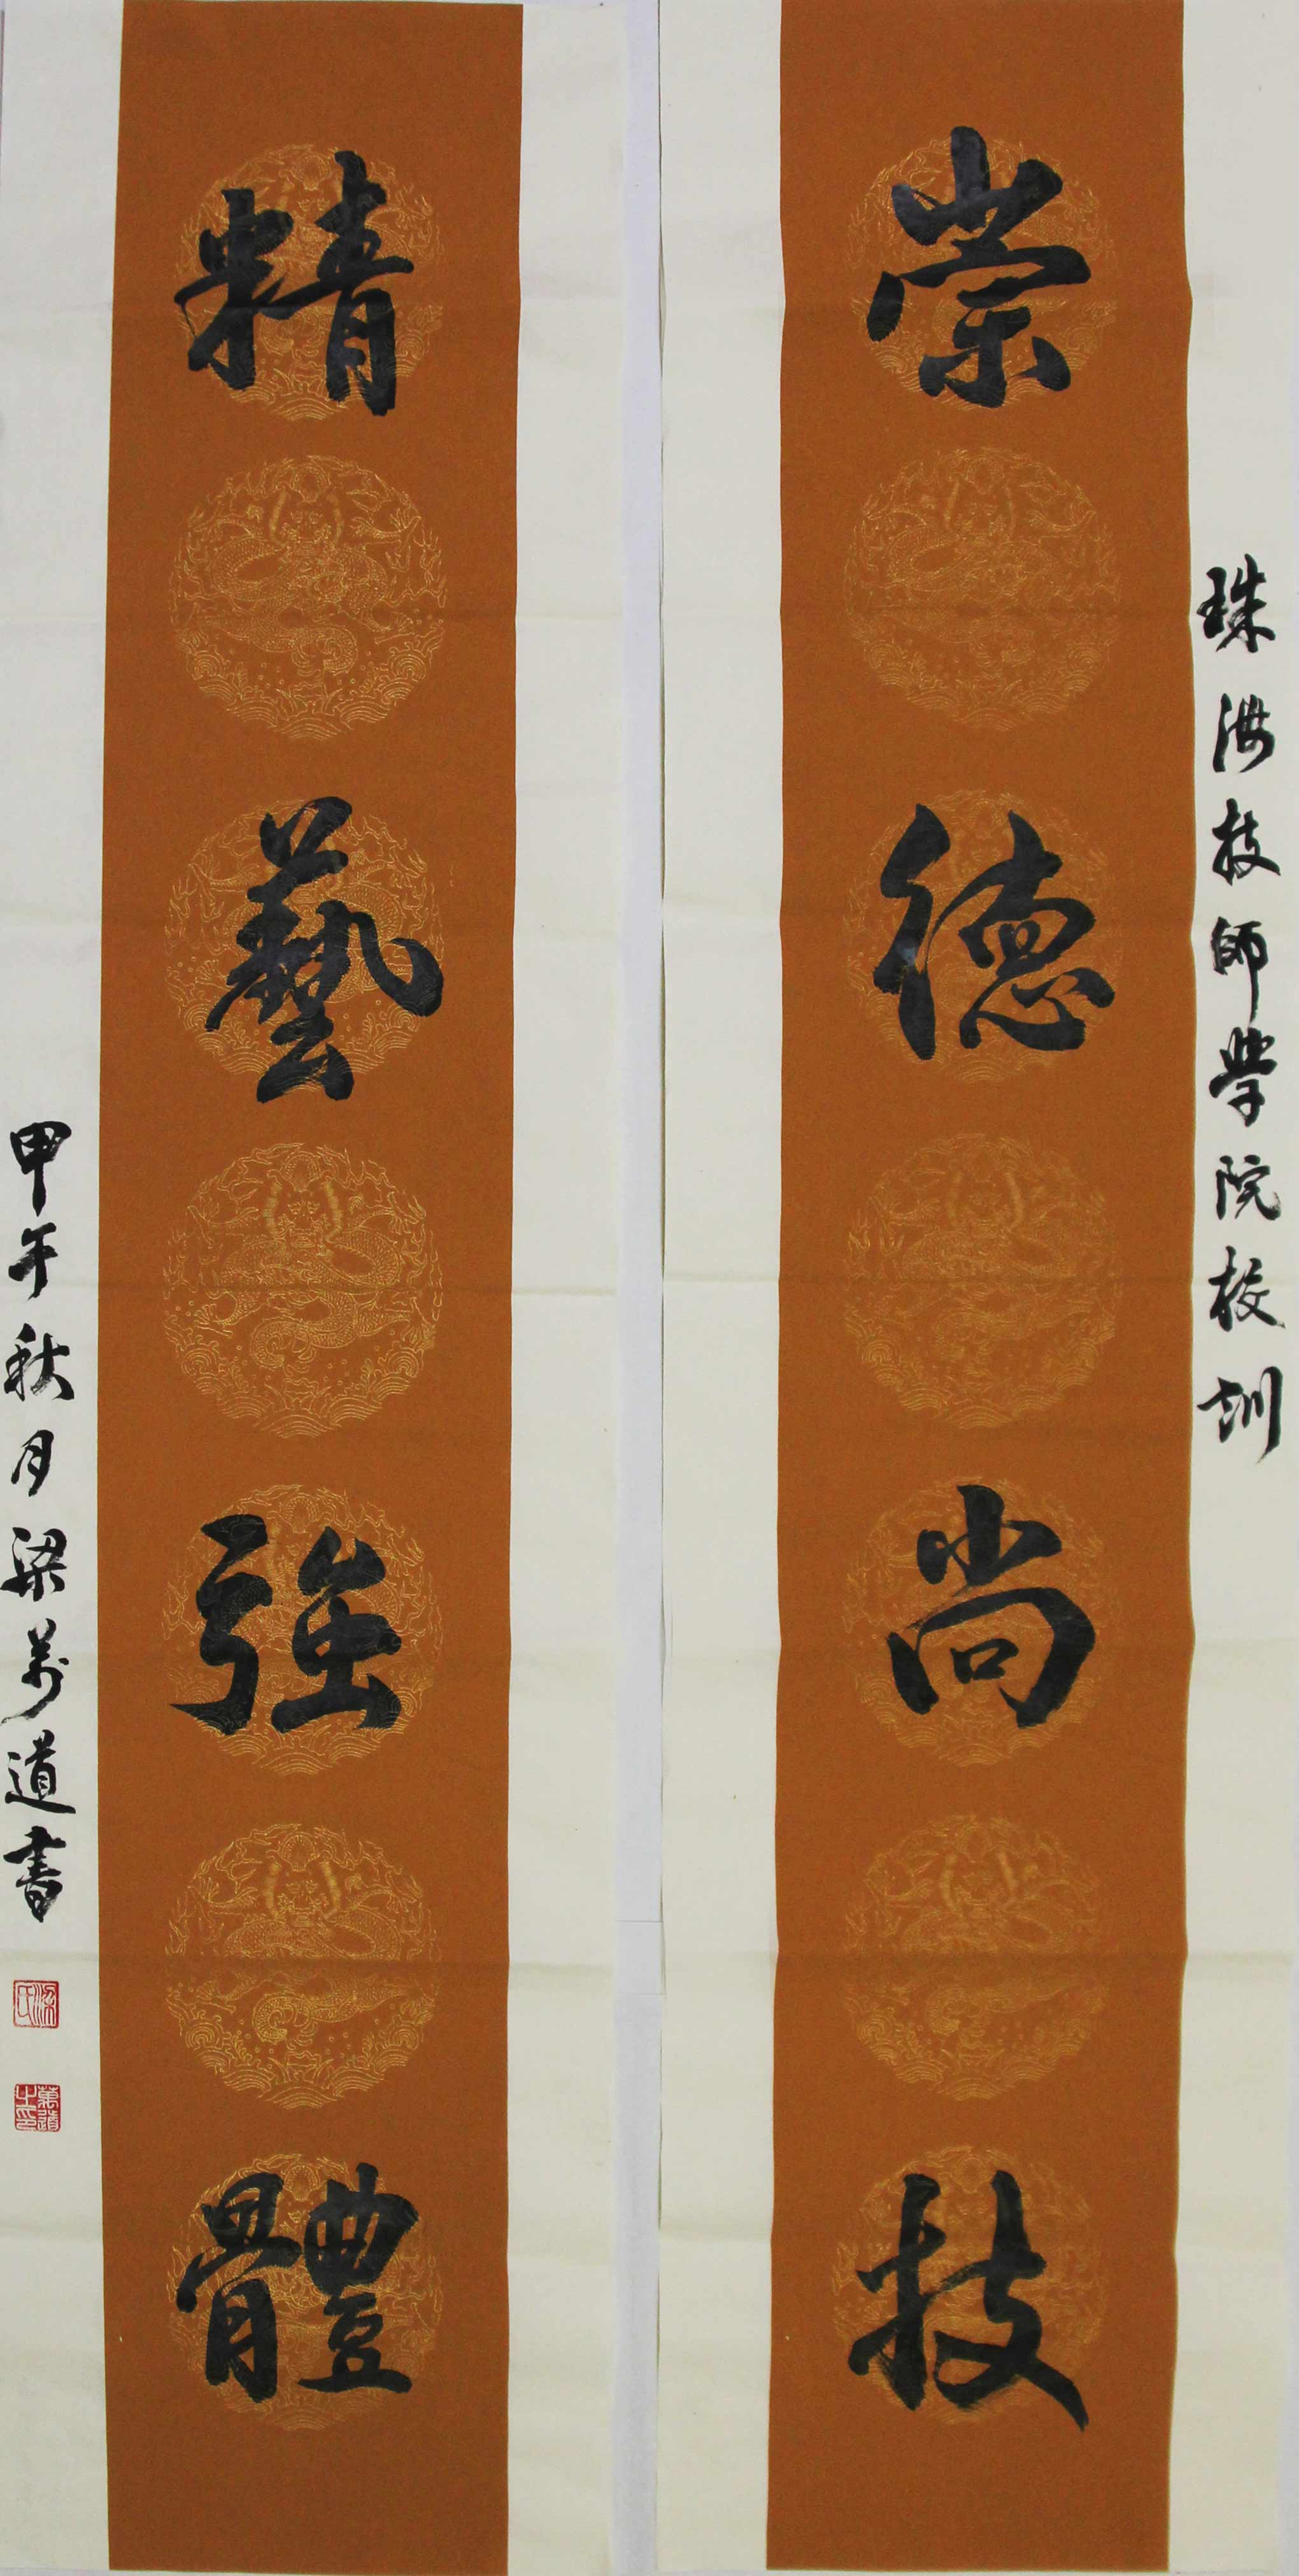 珠海技師學院校訓
崇德尚技
精藝強體
甲午秋月梁萬道書
梁氏
萬道之印